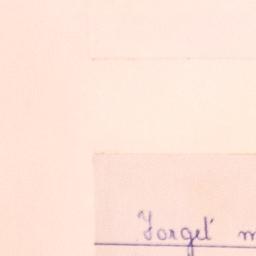 Forget m